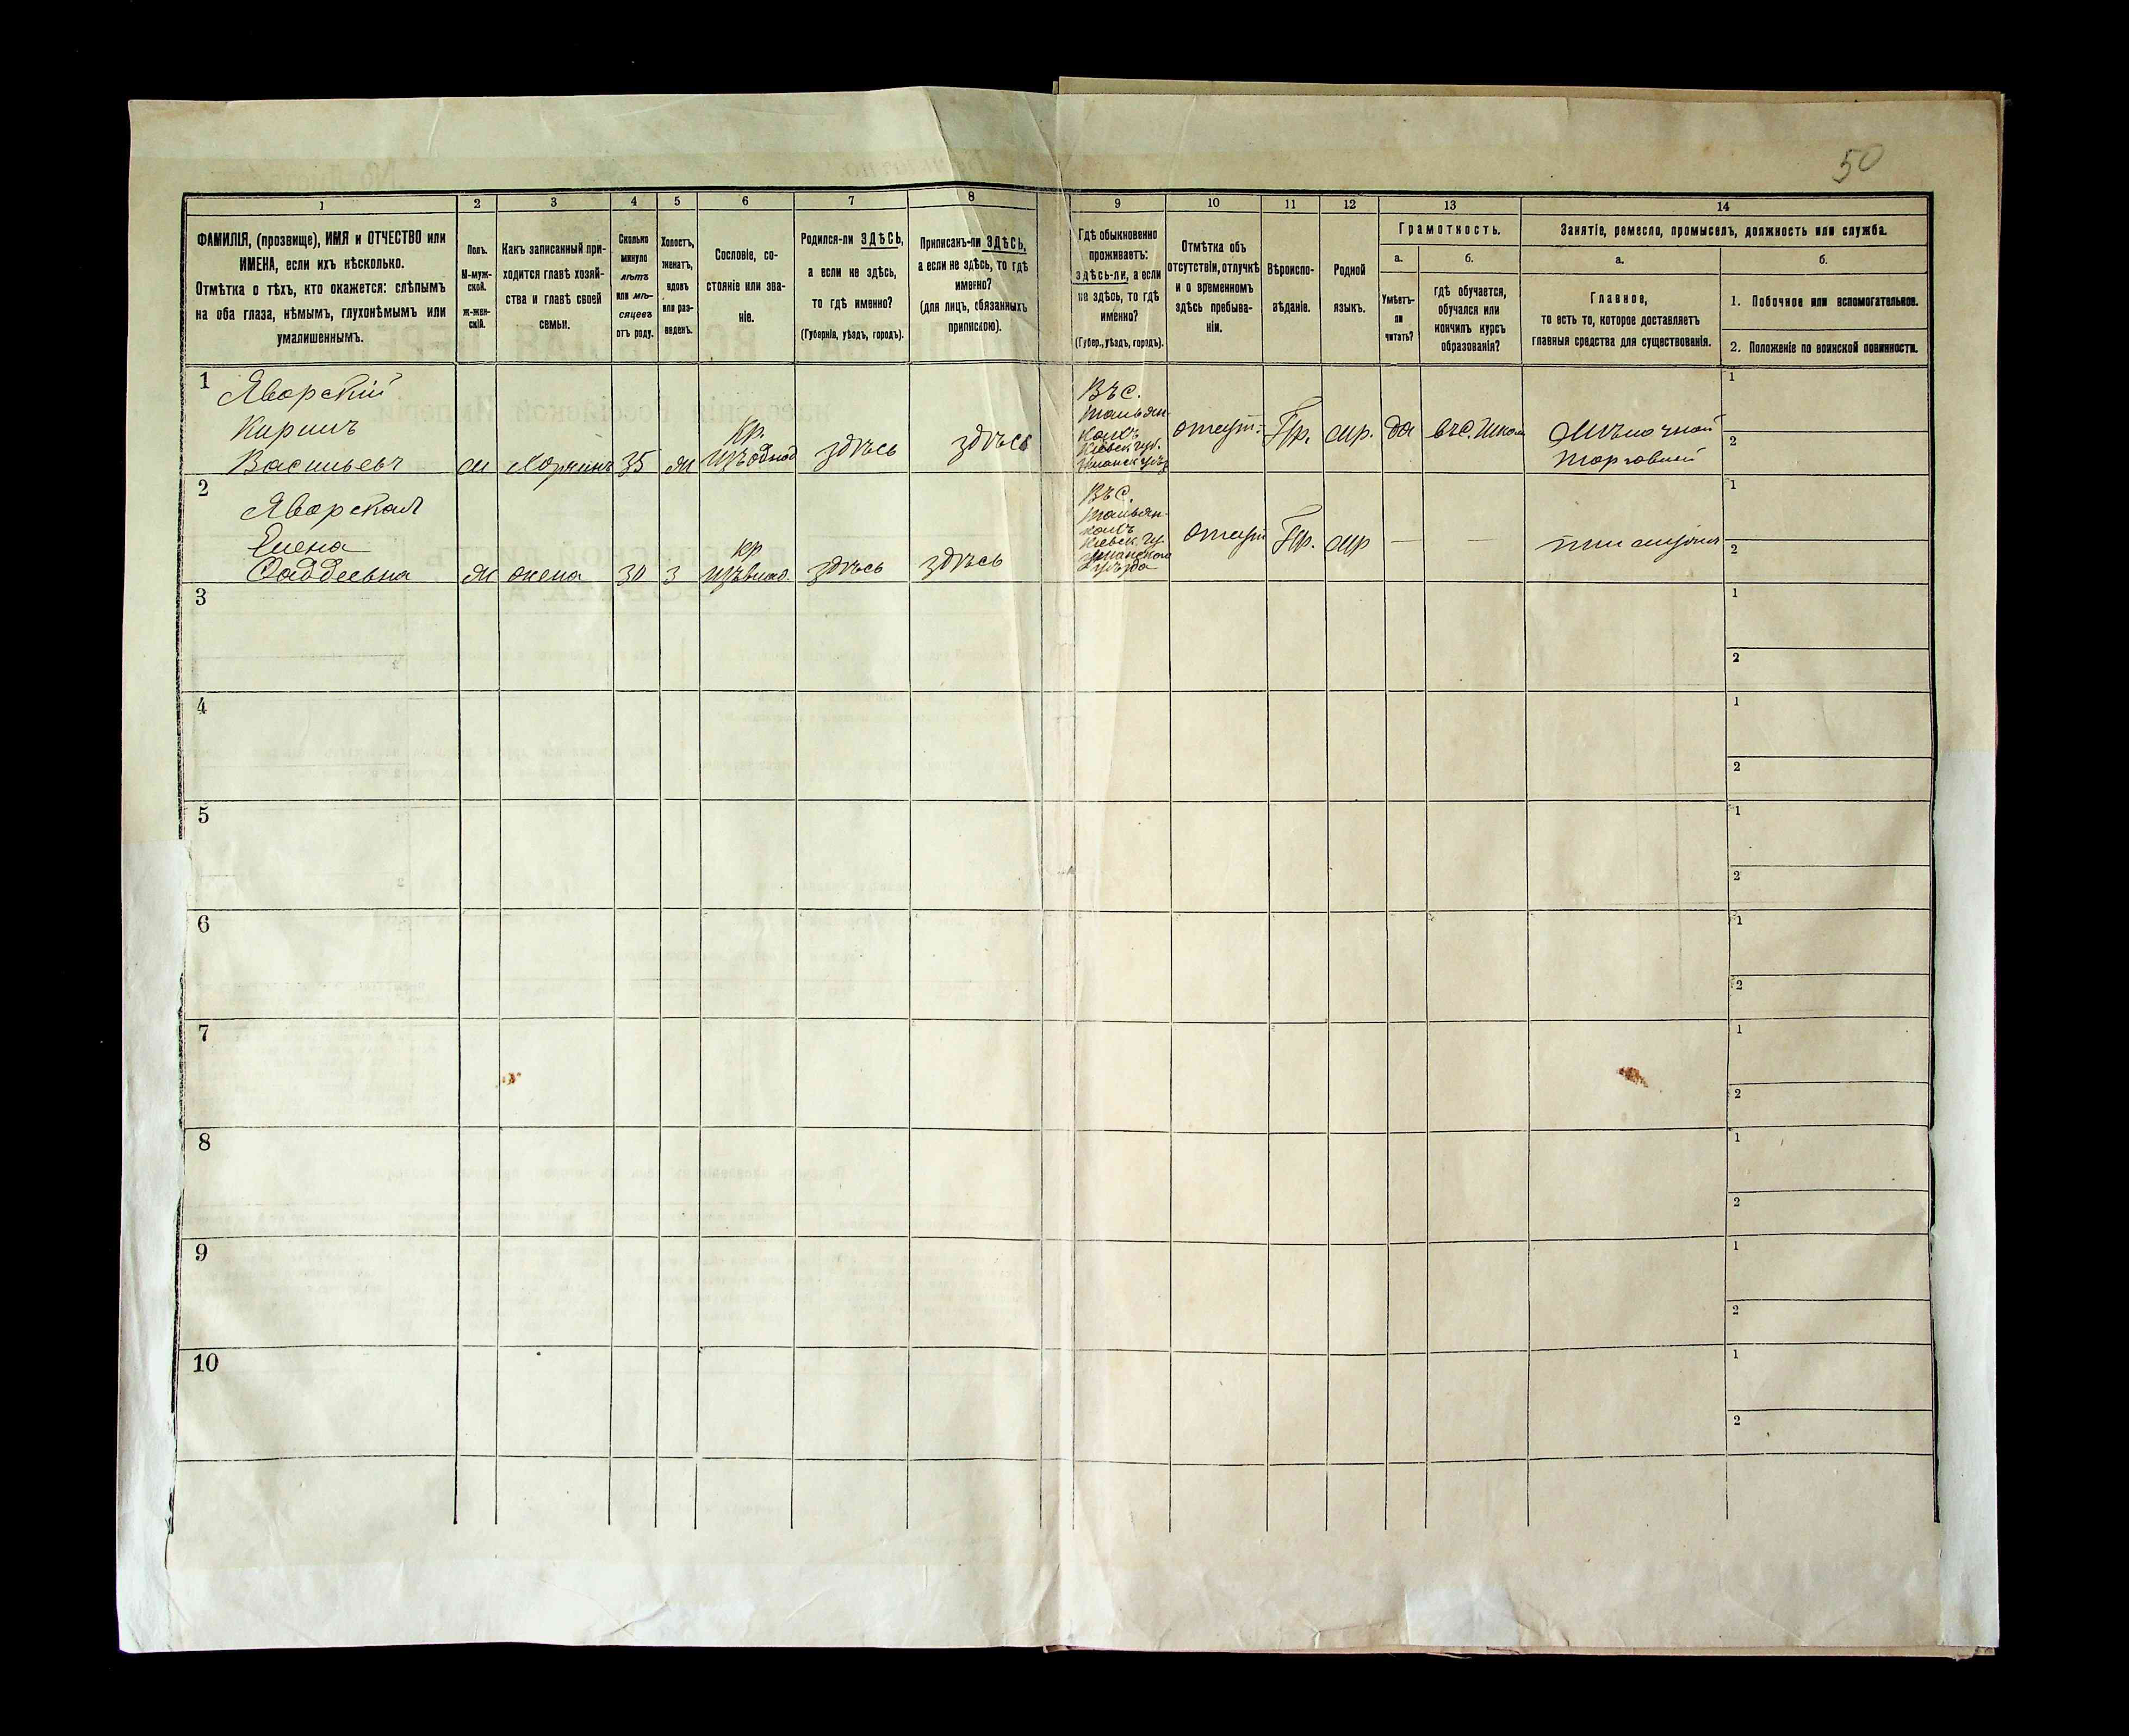 50
1
2
3
4
5
6
7
8
9
10
11
12
13
14
ФАМИЛІЯ, (прозвище), ИМЯ и ОТЧЕСТВО или
ИМЕНА, если ихъ нѣсколько.
Отмѣтка о тѣхъ, кто окажется: слѣпымъ
на оба глаза, нѣмымъ, глухонѣмымъ или
умалишеннымъ.
Полъ.
М-муж-
ской.
ж-жен-
скій.
Какъ записанный при-
ходится главѣ хозяй-
ства и главѣ своей
семьи.
Сколько
минуло
лѣтъ
или мѣ-
сяцевъ
отъ роду.
Холостъ,
женатъ,
вдовъ
или раз-
веденъ.
Сословіе, со-
стояніе или зва-
ніе.
Родился-ли ЗДѢСЬ,
а если не здѣсь,
то гдѣ именно?
(Губернія, уѣздъ, городъ).
Приписанъ-ли ЗДѢСЬ,
а если не здѣсь, то гдѣ
именно?
(для лицъ, обязанныхъ
припискою).
Гдѣ обыкновенно
проживаетъ:
здѣсь-ли, а если
не здѣсь, то гдѣ
именно?
(Губер., уѣздъ, городъ).
Отмѣтка объ
отсутствіи, отлучкѣ
и о временномъ
здѣсь пребыва-
ніи.
Вѣроиспо-
вѣданіе.
Родной
языкъ.
Грамотность.
а.
б.
Умѣетъ-
ли
читать?
гдѣ обучается,
обучался или
кончилъ курсъ
образованія?
Занятіе, ремесло, промыселъ, должность или служба.
а.
б.
Главное,
то есть то, которое доставляетъ
главныя средства для существованія.
1. Побочное или вспомогательное.
2. Положеніе по воинской повинности.
1
Яворскій
Кирилъ
Васильевъ
м
хозяинъ
35
ж
Кр.
здѣсь
здѣсь
Въ С.
Тальян-
кахъ
Кіевск. губ.
отсут.
Пр.
мр.
да
въ С. Школ
Мѣлочной
торговлей
1
2
2
Яворская
Елена
Фаддеевна
ж
жена
30
з
кр
здѣсь
здѣсь
Въ С.
Тальян-
кахъ
Кіевск. гу
Уманскаго
уѣзда
отсут
Пр.
мр
—
—
при мужѣ
1
2
3
1
2
4
1
2
5
1
2
6
1
2
7
1
2
8
1
2
9
1
2
10
1
2